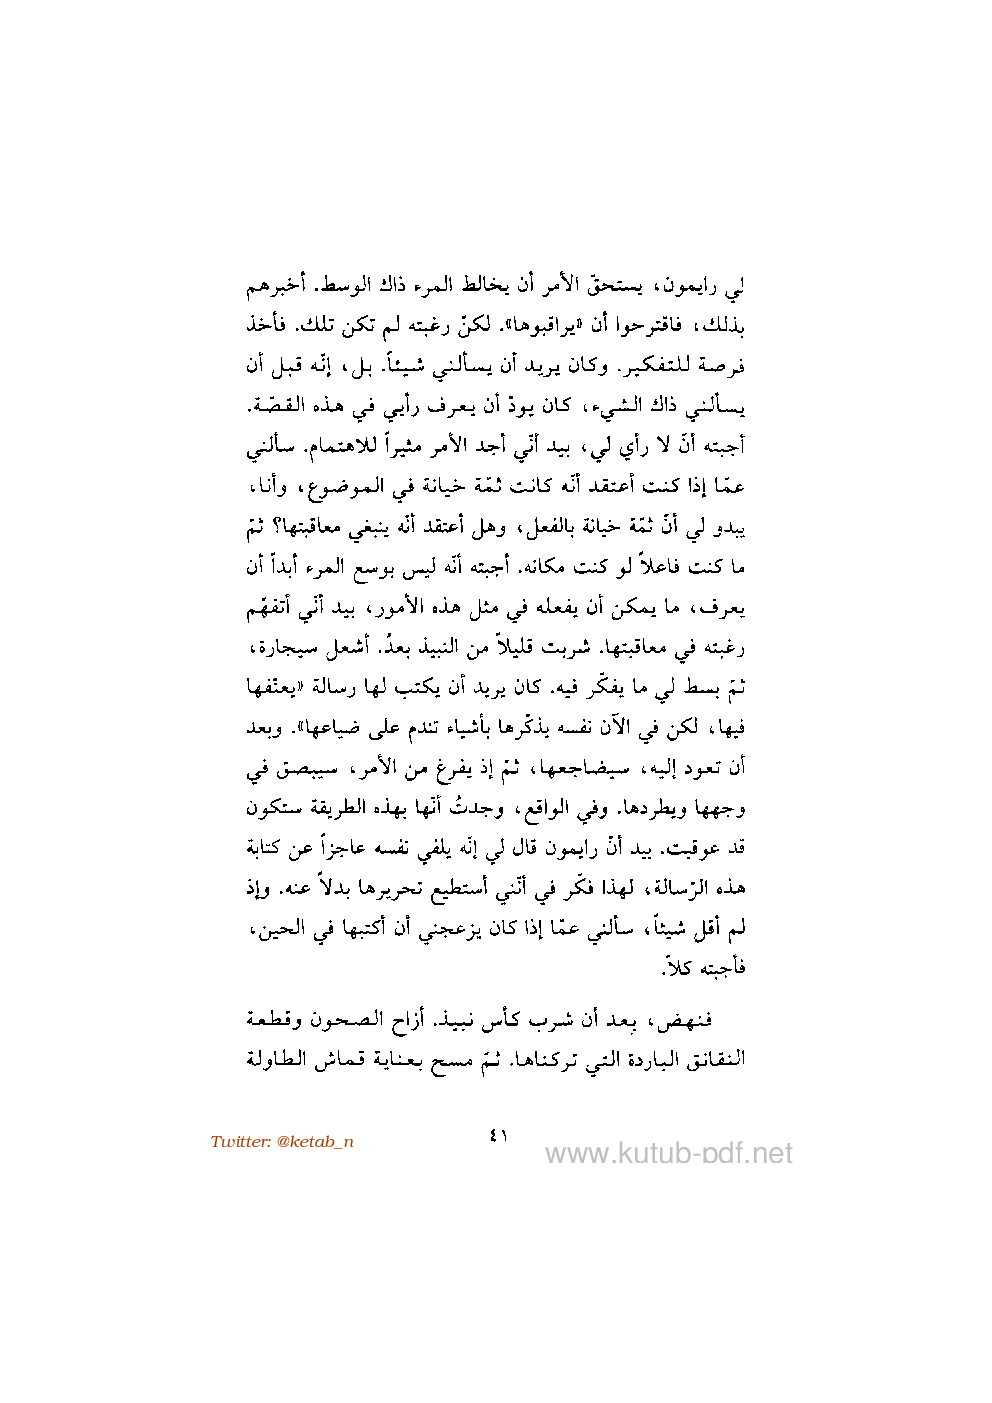 لي رايمون، يستحقّ الأمر أن يخالط المرء ذاك الوسط. أخبرهم
بذلك، فاقترحوا أن «يراقبوها». لكنّ رغبته لم تكن تلك. فأخذ
فرصة للتفكير. وكان يريد أن يسألني شيئاً. بل، إنّه قبل أن
يسألني ذاك الشيء، كان يودّ أن يعرف رأيي في هذه القصّة.
أجبته أنّ لا رأي لي، بيد أنّي أجد الأمر مثيراً للاهتمام. سألني
عمّا إذا كنت أعتقد أنّه كانت ثمّة خيانة في الموضوع، وأنا،
يبدو لي أنّ ثمّة خيانة بالفعل، وهل أعتقد أنّه ينبغي معاقبتها؟ ثمّ
ما كنت فاعلاً لو كنت مكانه. أجبته أنّه ليس بوسع المرء أبداً أن
يعرف، ما يمكن أن يفعله في مثل هذه الأمور، بيد أنّي أتفهّم
رغبته في معاقبتها. شربت قليلاً من النبيذ بعدُ. أشعل سيجارة،
ثمّ بسط لي ما يفكّر فيه. كان يريد أن يكتب لها رسالة «يعنّفها
فيها، لكن في الآن نفسه يذكّرها بأشياء تندم على ضياعها». وبعد
أن تعود إليه، سيضاجعها، ثمّ إذ يفرغ من الأمر، سيبصق في
وجهها ويطردها. وفي الواقع، وجدتُ أنّها بهذه الطريقة ستكون
قد عوقبت. بيد أنّ رايمون قال لي إنّه يلفي نفسه عاجزاً عن كتابة
هذه الرّسالة، لهذا فكّر في أنّني أستطيع تحريرها بدلاً عنه. وإذ
لم أقل شيئاً، سألني عمّا إذا كان يزعجني أن أكتبها في الحين،
فأجبته كلاّ.
فنهض، بعد أن شرب كأس نبيذ. أزاح الصحون وقطعة
النقانق الباردة التي تركناها. ثمّ مسح بعناية قماش الطاولة
٤١
Twitter: @ketab_n
www.kutub-pdf.net